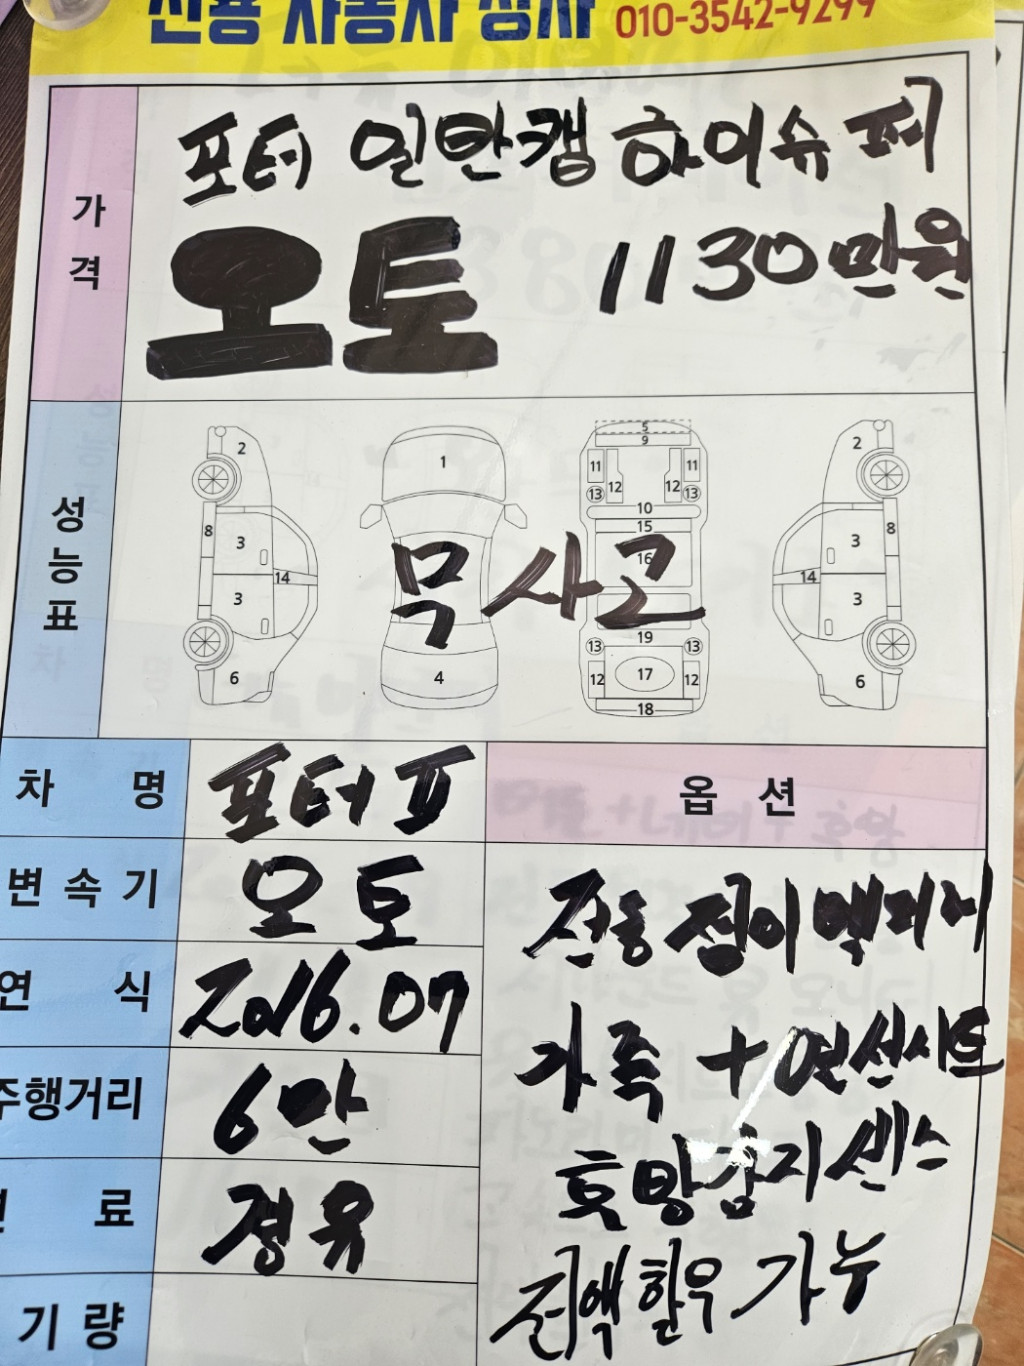 신용 자동차 상사 010-3542-9299
가격
포터 일반캡 하이슈퍼
오토 1130만원
성능표
2
8
3
3
14
6
1
4
5
9
11 11
12 12
13 13
10
15
16
19
13 13
12 17 12
18
2
8
3
3
14
6
무사고
차 명 포터 II
변속기 오토
연 식 2016.07
주행거리 6만
료 경유
기량
옵 션
전동접이 백미러
가죽 + 열선시트
후방감지센스
전액할우 가능